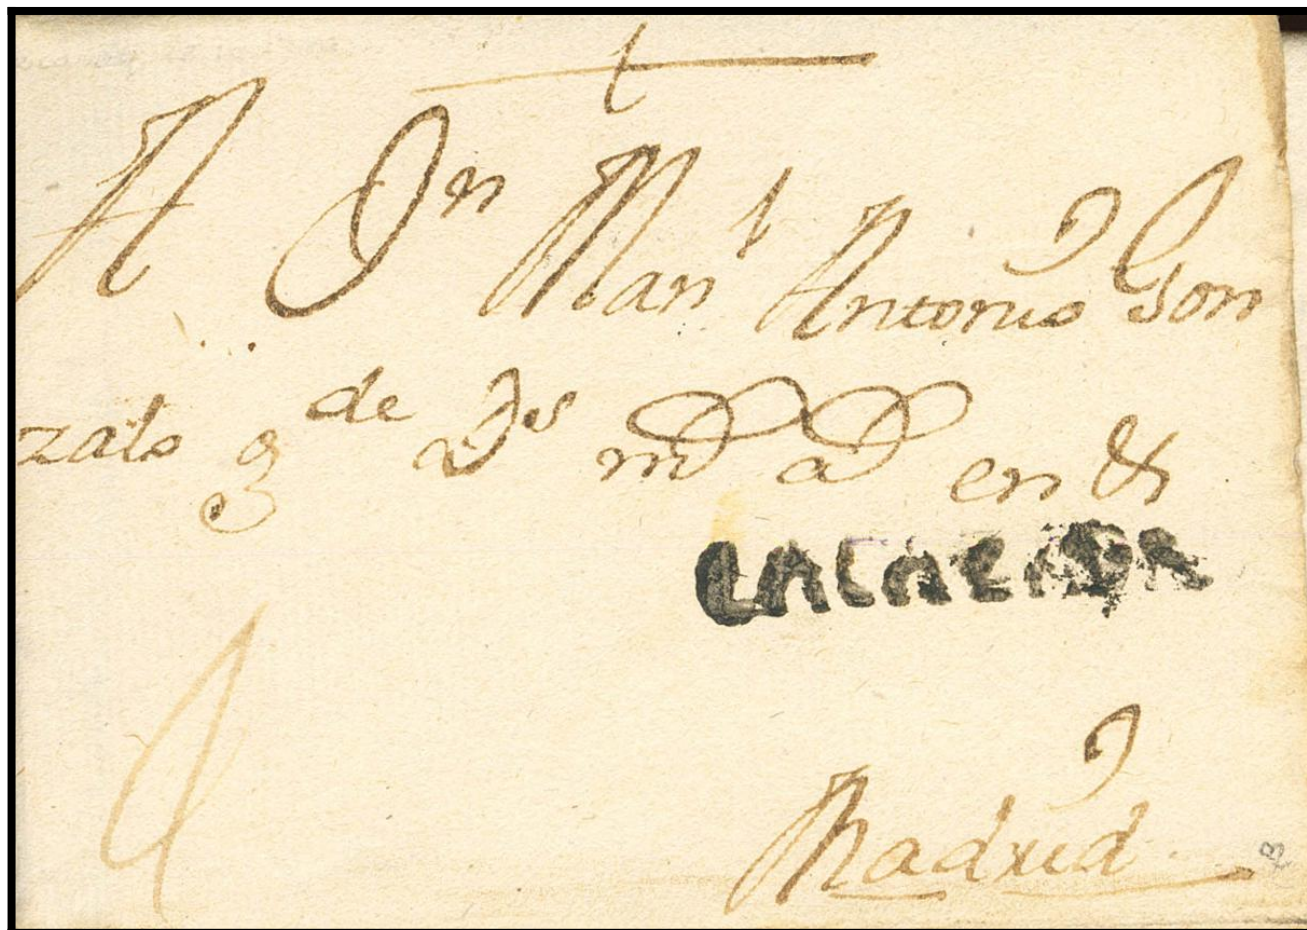 A Dn Manl Antonio Gon
zalo gde Ds ms as en &
LACALZADA
Madrid